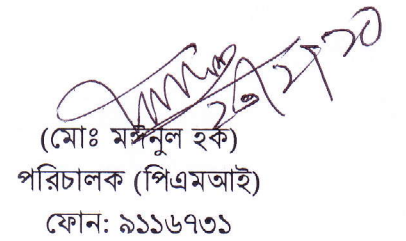 (মোঃ মঈনুল হক)
পরিচালক (পিএমআই)
ফোন: ৯১১৬৭৩১